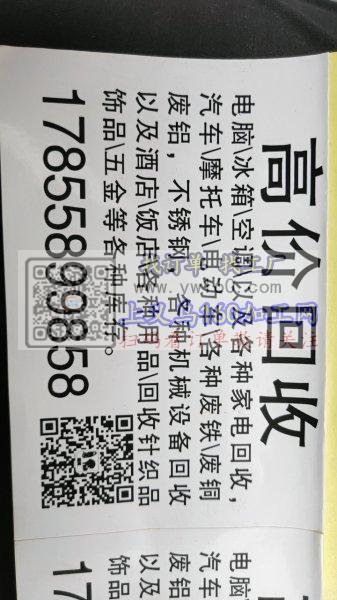 高价回收
电脑\冰箱\空调以及各种家电回收，
汽车\摩托车\电动车\各种废铁\废铜
废铝，不锈钢，各种机械设备回收
以及酒店\饭店各种用品\回收针织品
饰品\五金等各种库存。
17855899858
找工厂
上义乌168加工网
电脑\
汽车\
废铝
以及
饰品
17